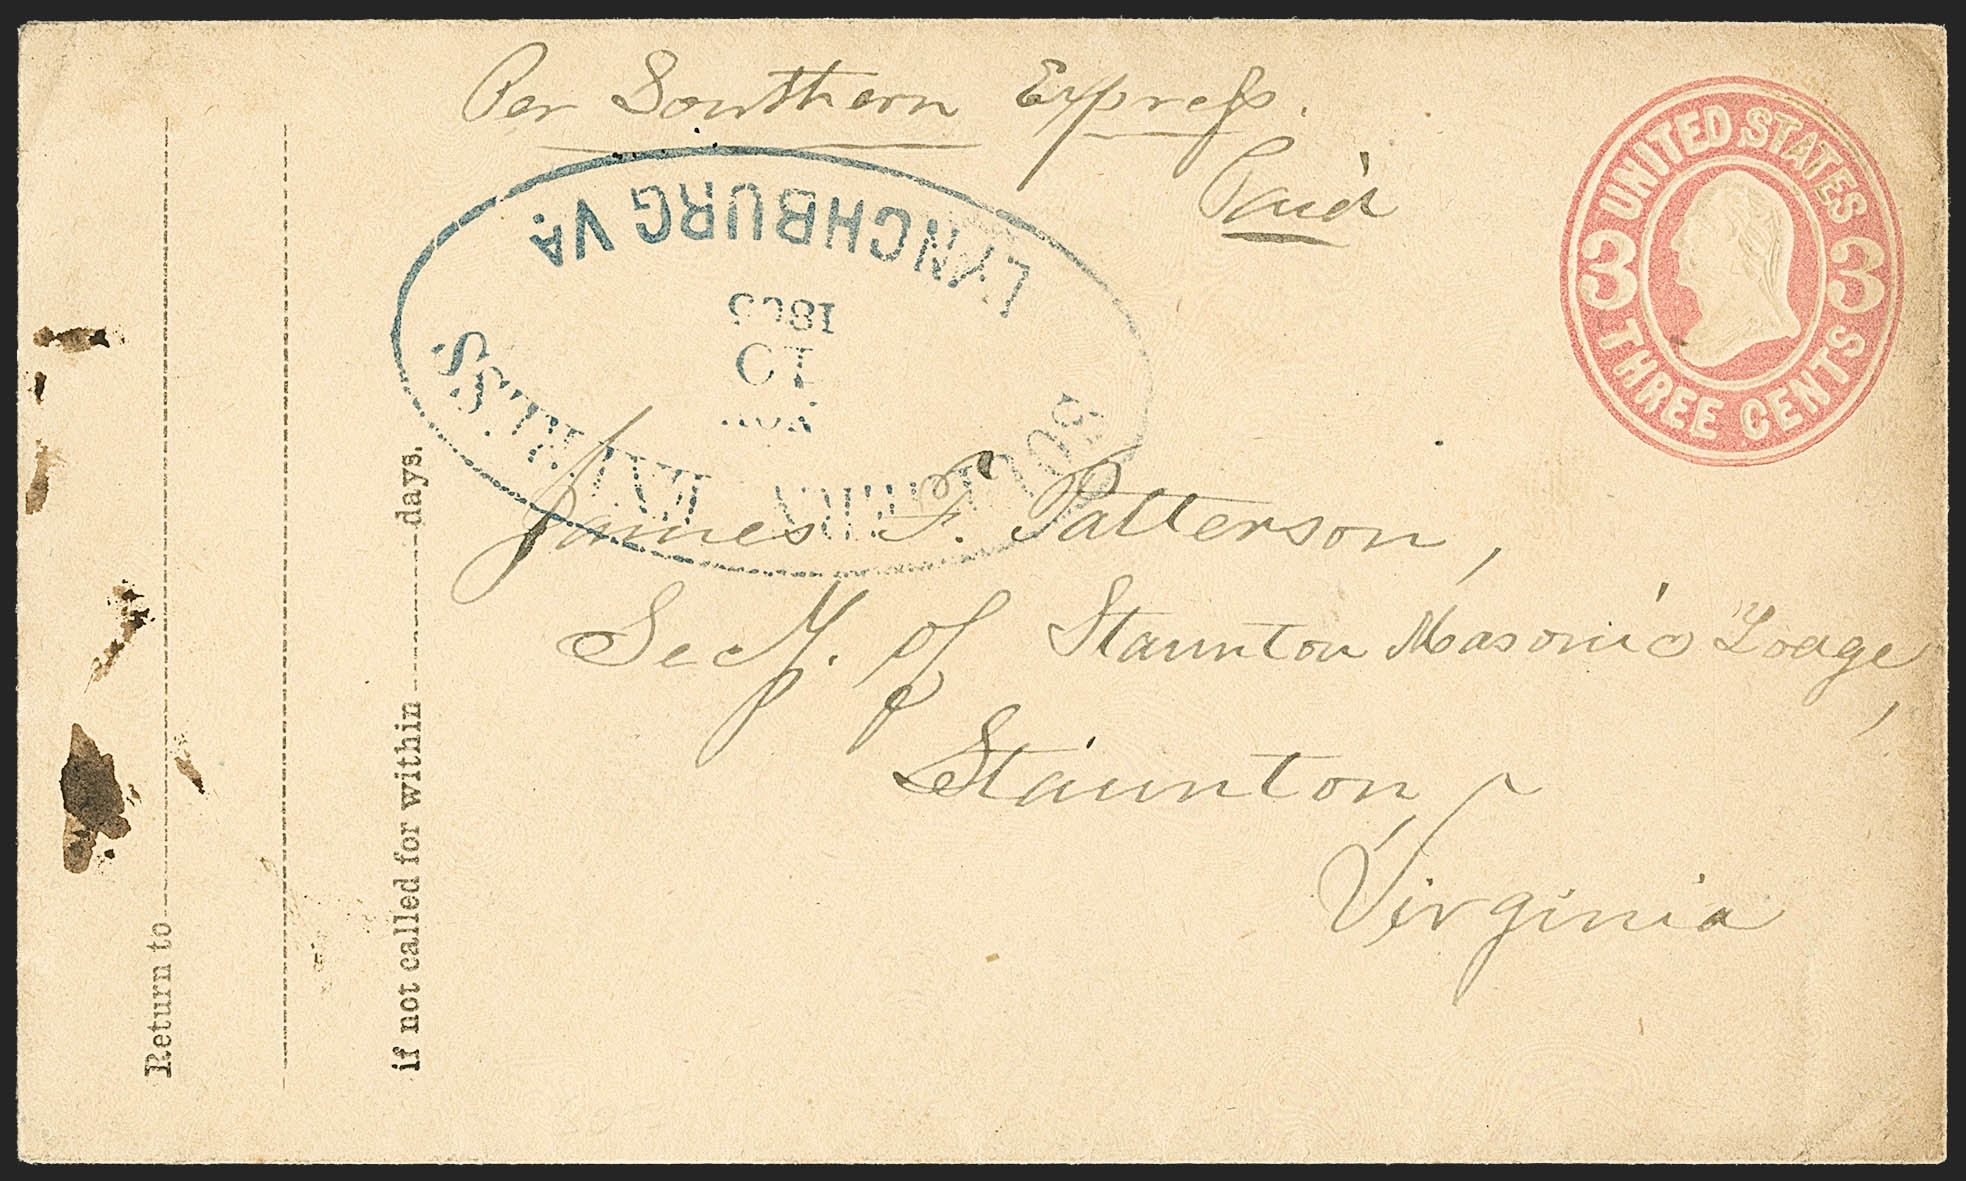 Per Southern Express.
Paid
UNITED STATES
3 3
THREE CENTS
SOUTHERN EXPRESS
NOV
10
LYNCHBURG VA.
James F. Patterson,
Secty. of Staunton Masonic Lodge,
Staunton,
Virginia
Return to
if not called for within days.